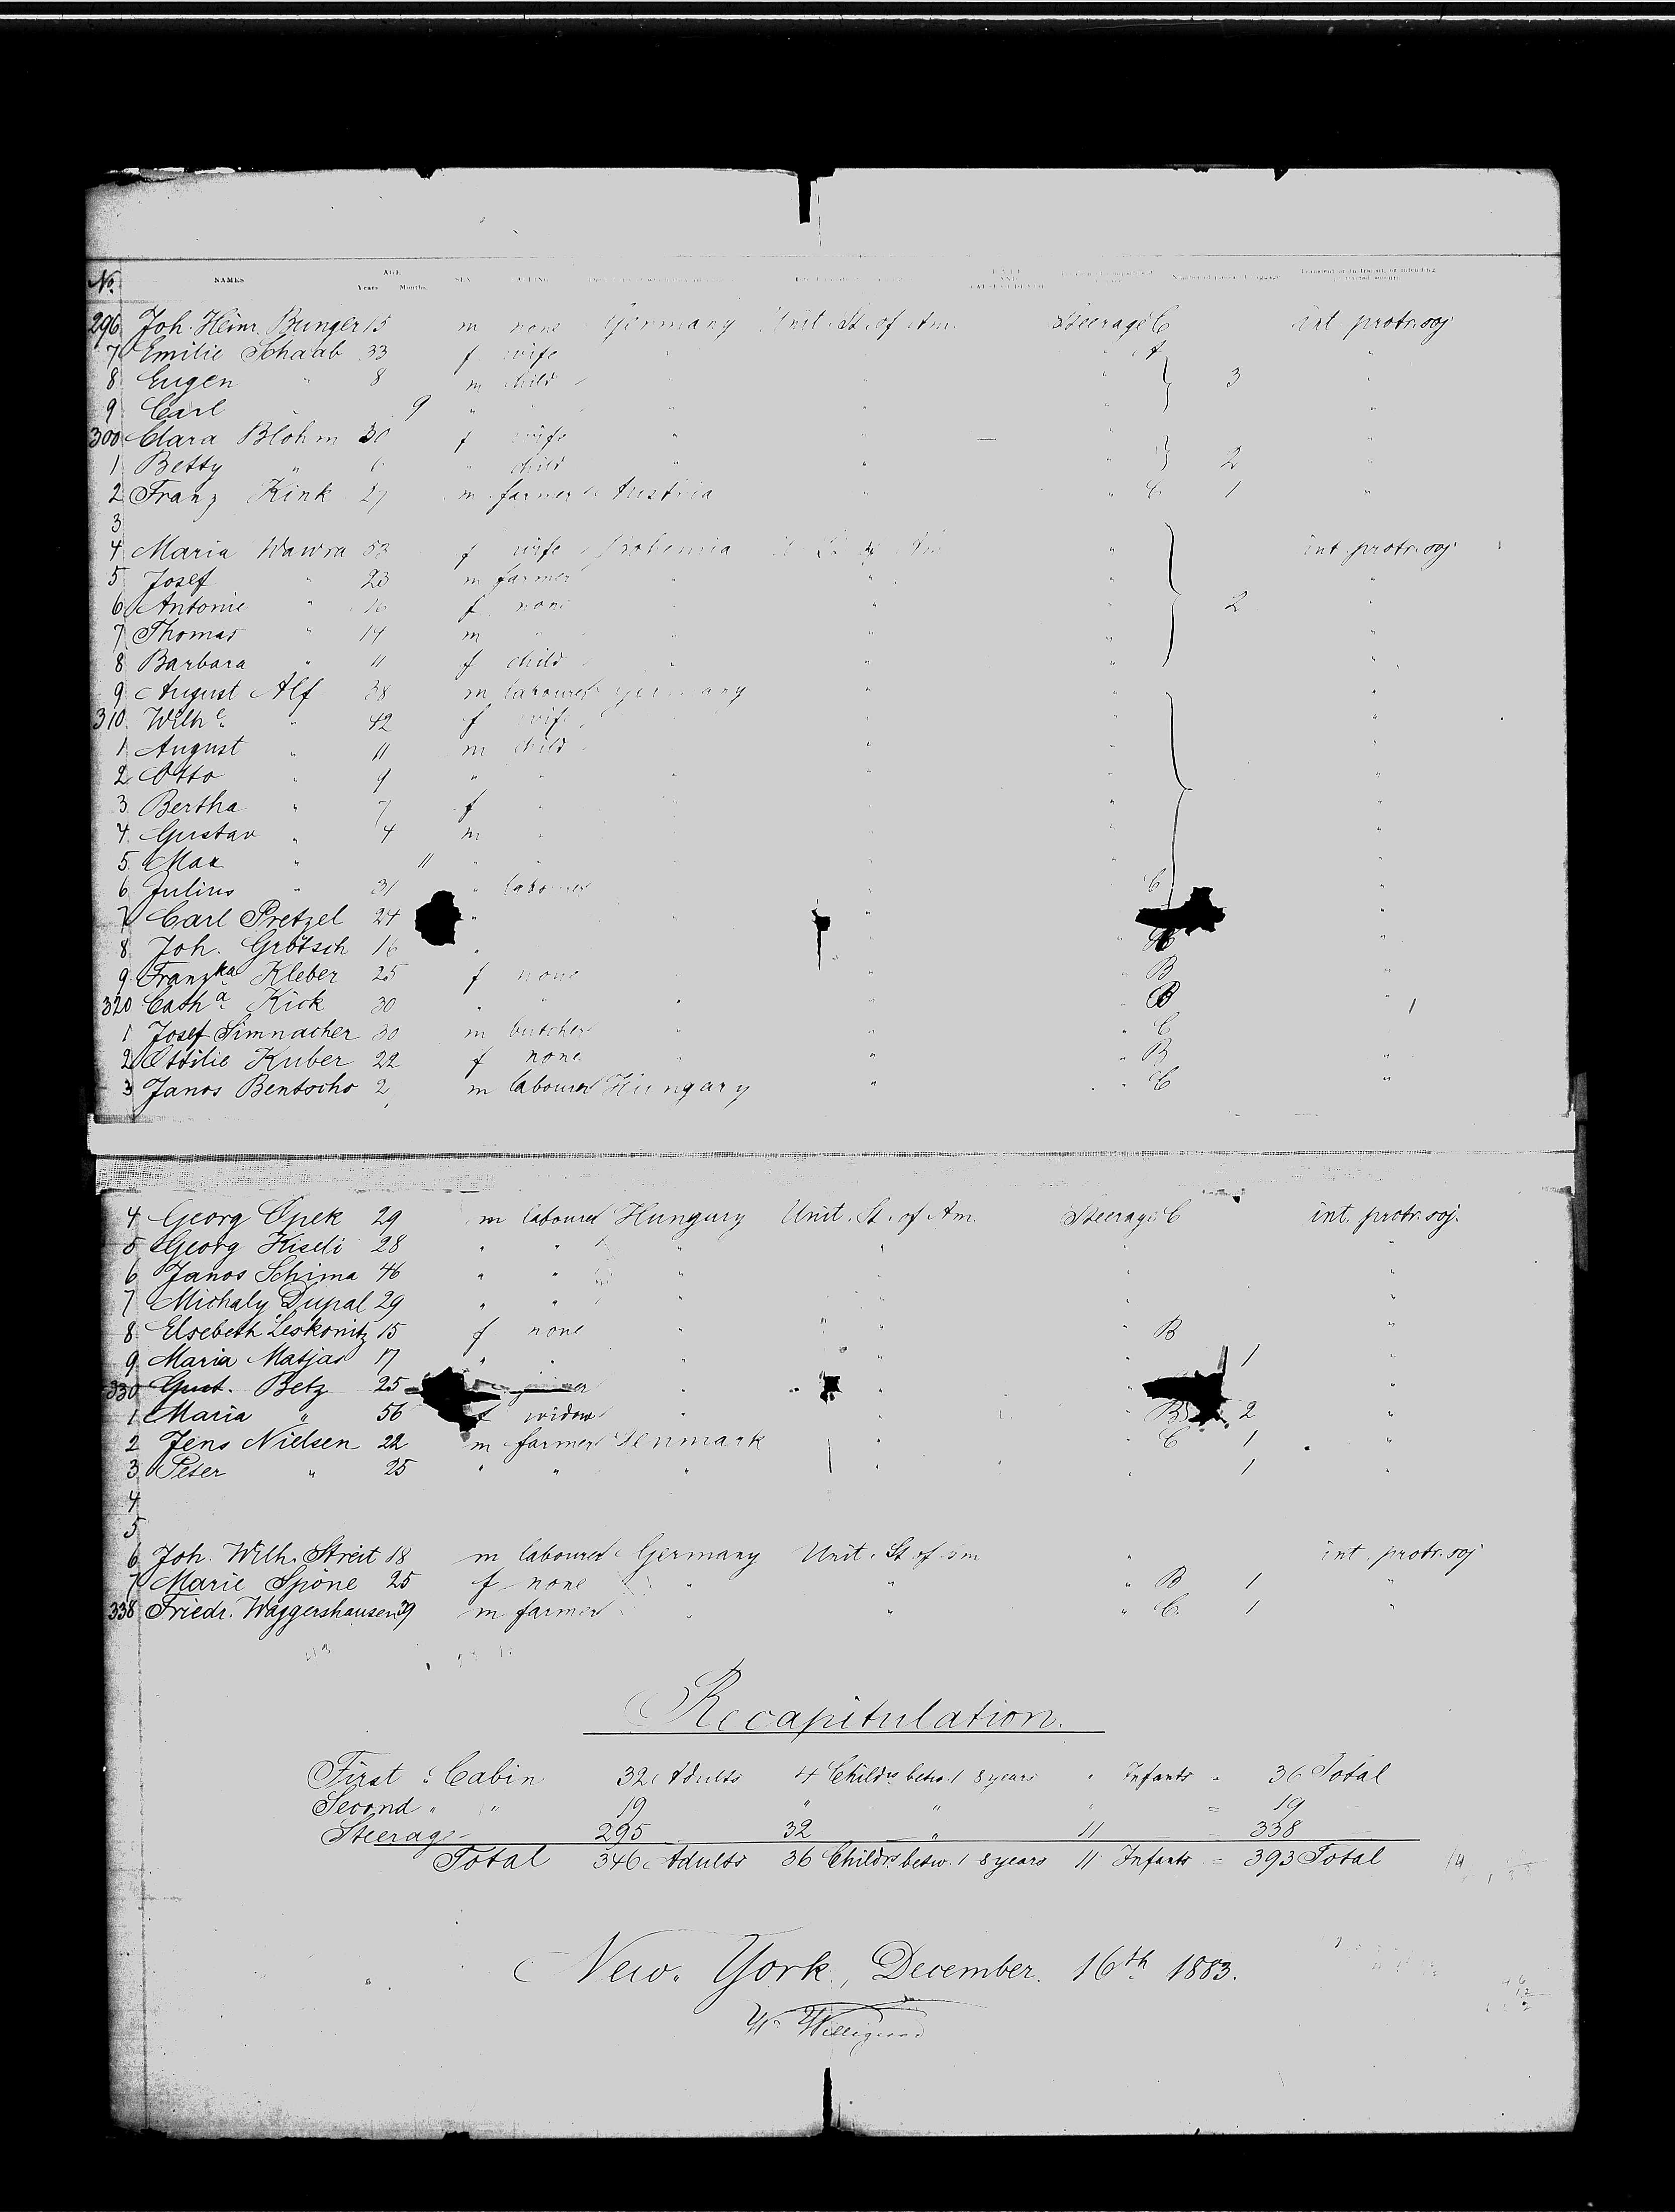 No. NAMES AGE Years Months SEX CALLING
296 Joh. Heinr. Bunger 15 m none Germany Unit. St. of Am. Steerage C int protr. soj
7 Emilie Schaab 33 f wife " A "
8 Eugen " 8 m child " 3 "
9 Carl 9 " " " " "
300 Clara Blohm 30 f wife " "
1 Betty " 6 " child " " " 2 "
2 Franz Kink 27 m farmer Austria " C 1 "
3
4 Maria Wawra 53 f wife Bohemia U. St. of Am " int protr. soj
5 Josef " 23 m farmer " " " "
6 Antonie " 16 f none " " " 2 "
7 Thomas " 14 m " " " " "
8 Barbara " 11 f child " " " "
9 August Alf 38 m labourer Germany " " "
310 Wilhe " 42 f wife " " "
1 August " 11 m child " " "
2 Otto " 9 " " " " " "
3 Bertha " 7 f " " "
4 Gustav " 4 m " " "
5 Max " 11 " " " " "
6 Julius " 31 " labourer " C "
7 Carl Pretzel 24 " " " "
8 Joh. Grötsch 16 " " " "
9 Franzka Kleber 25 f none " " B "
320 Catha Kick 30 " " " " " B " 1
1 Josef Simnacher 30 m butcher " " " C
2 Ottilie Kuber 22 f none " " " B "
3 Janos Bentscho 2 m labourer Hungary " " C "
4 Georg Opek 29 m labourer Hungary Unit. St. of Am. Steerage C int. protr. soj.
5 Georg Kiseli 28 " " " " " "
6 Janos Schima 46 " " " " " "
7 Michaly Dupal 29 " " " " " "
8 Elsebeth Leskonitz 15 f none " " " B "
9 Maria Matjas 17 " " " " " 1 "
330 Gust. Betz 25 " "
1 Maria " 56 f widow " " " B 2 "
2 Jens Nielsen 22 m farmer Denmark " " C 1 "
3 Peter " 25 " " " " " 1 "
4
5
6 Joh. Wilh. Streit 18 m labourer Germany Unit. St. of Am " int. protr. soj
7 Marie Spöne 25 f none " " " B 1 "
338 Friedr. Waggershausen 39 m farmer " " " C. 1 "
Recapitulation.
First Cabin 32 Adults 4 Childrs. betw. 1 8 years " Infants = 36 Total
Second " " 19 " " " = 19
Steerage 295 32 " 11 338
Total 346 Adults 36 Childrs. betw. 1 8 years 11 Infants = 393 Total
New York, December. 16th 1883.